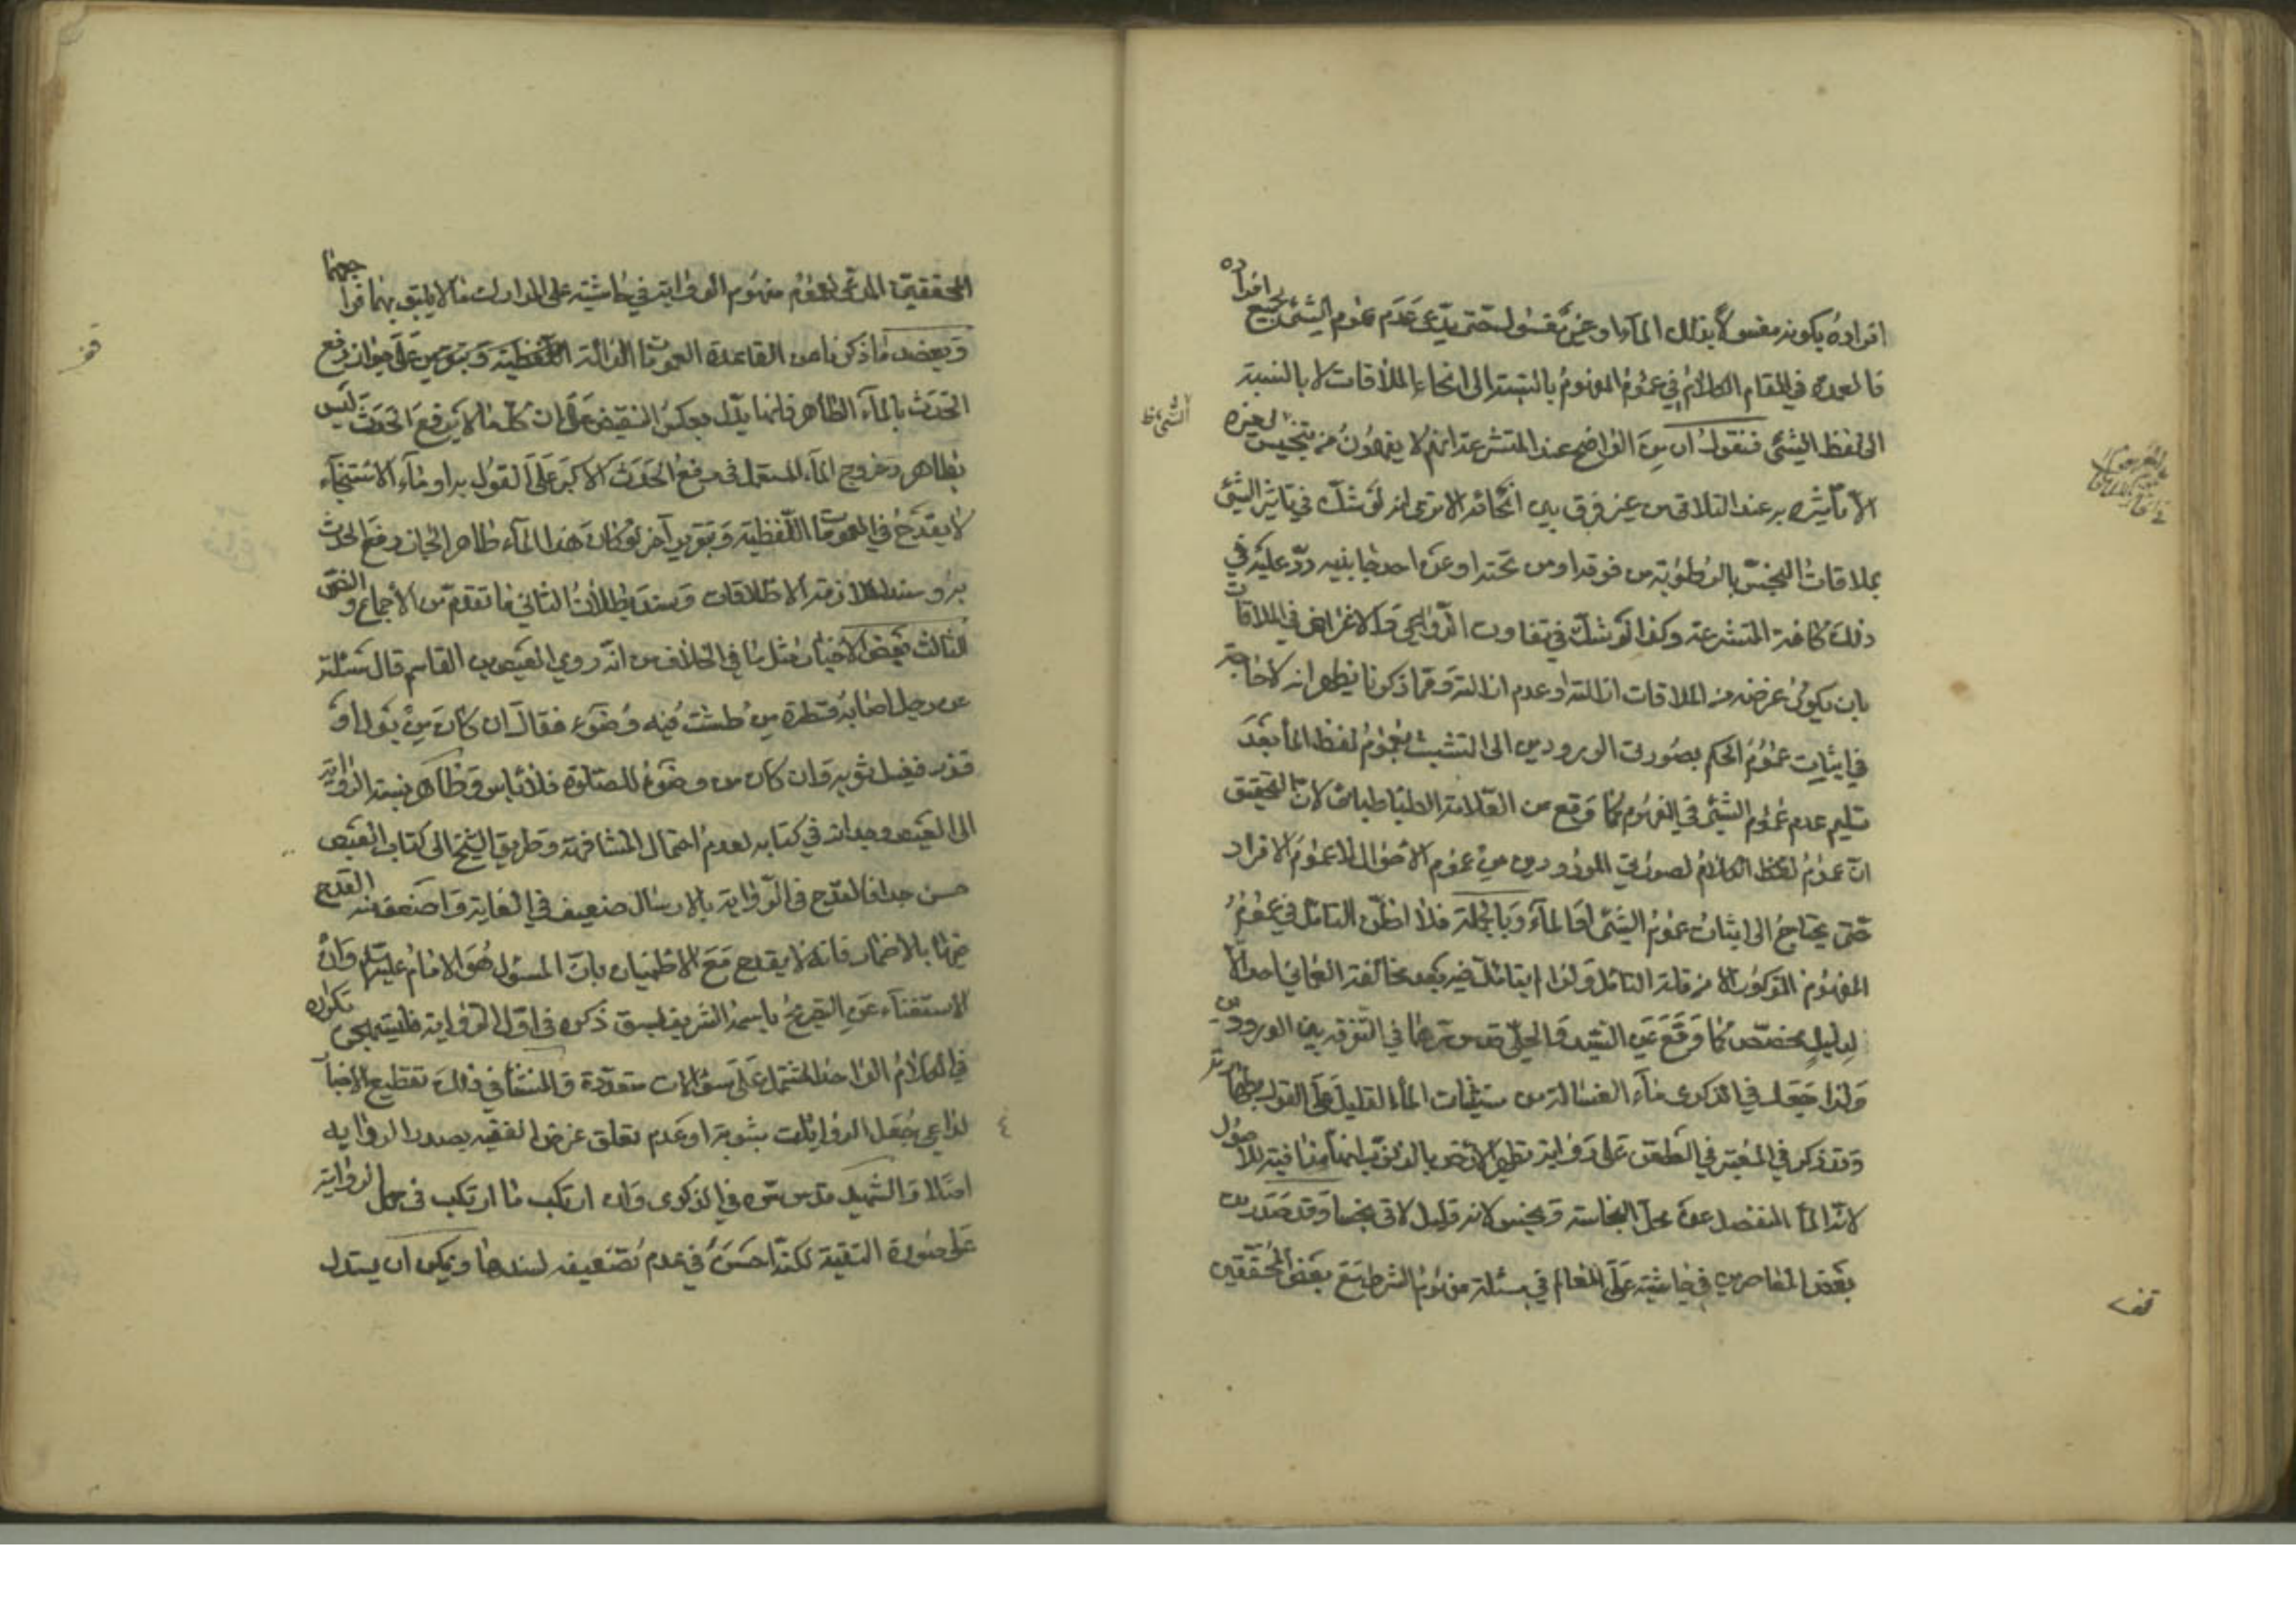 افراده بكونه مغسولا بذلك الماء او غير مغسول حتى يدعى عدم عموم الشئ لجميع افراده
فالعمدة في المقام الكلام في عموم المفهوم بالنسبة الى انحاء الملاقات لا بالنسبة
الى لفظ الشئ فنقول ان من الواضح عند المتشرعة انهم لا يفهمون من تنجيس لغيره
الا تأثيره به عند التلاقى من غير فرق بين انحائه الا ترى انه لو شك في تاثير الشئ
بملاقات النجس بالرطوبة من فوقه او من تحته او عن احد جانبيه ردّ عليه في
ذلك كافة المتشرعة وكذا لو شك في تفاوت الدواعي والاغراض في الملاقات
بان يكون غرضه من الملاقات ازالته او عدم ازالته ومما ذكرنا يظهر انه لا حاجة
في اثبات عموم الحكم بصورتى الورودين الى التشبث بعموم لفظ الماء بعد
تسليم عدم عموم الشئ في المفهوم كما وقع من العلامة الطباطبائى لان التحقيق
ان عموم لفظ الكلام لصورتي الورودين من عموم الاحوال لا عموم الافراد
حتى يحتاج الى اثبات عموم الشئ او الماء وبالجملة فلا اظن التامل في عموم
المفهوم المذكور الا من قلة التامل ولذا لم يتامل فيه بعد مخالفة العماني احد الا
لدليل مخصص كما وقع عن السيد والحلي قدس سرهما في التفرقة بين الورودين
ولذا جعل في الذكرى ماء الغسالة من مستثنيات الماء القليل على القول بطهارته
وقد ذكر في المعتبر في الطعن على رواية تطهير الارض بالذنوب انها منافية للاصول
لانه الماء المنفصل عن محل النجاسة ونجس لانه قليل لاقى نجسا وقد صدر من
بعض المعاصرين في حاشيته على المعالم في مسئلة مفهوم الشرط مع بعض المحققين
المحققين المدعى لعموم مفهوم الرواية في حاشيته على المدارك ما لا يليق بهما فراجعهما
ويعضد ما ذكرنا من القاعدة العمومات الدالة اللفظية وبتقريب على جواز رفع
الحدث بالماء الطاهر فانها يدل بعكس النقيض على ان كلما لا يرفع الحدث ليس
بطاهر وخروج الماء المستعمل في رفع الحدث الاكبر على القول به او ماء الاستنجاء
لا يقدح في العمومات اللفظية وبتقرير آخر لو كان هذا الماء طاهرا لجاز رفع الحدث
به وسند الملازمة الاطلاقات وسند بطلان الثاني ما تقدم من الاجماع والنص
الثالث بعض الاخبار مثل ما في الخلاف من انه روي العيص بن القاسم قال سئلته
عن رجل اصابه قطرة من طشت فيه وضوء فقال ان كان من بول او
قذر فيغسل ثوبه وان كان من وضوئه للصلوة فلا باس وظاهر نسبة الرواية
الى العيص وجدانه في كتابه لعدم احتمال المشافهة وطريق الشيخ الى كتاب العيص
حسن جدا فالقدح في الرواية بالارسال ضعيف في الغاية واضعف منه القدح
فيها بالاضمار فانه لا يقدح مع الاطمينان بان المسئول هو الامام عليه السلام وان
الاستغناء عن التصريح باسمه الشريف لسبق ذكره في اول الرواية فليستهجن تكراره
في الكلام الواحد المشتمل على سؤالات متعددة والمنشأ في ذلك تقطيع الاخبار
لداعي جعل الروايات مبوبة او عدم تعلق غرض الفقيه بصدر الرواية
اصلا والشهيد قدس سره في الذكرى وان ارتكب ما ارتكب في حمل الرواية
على صورة التقية لكنه احسن في عدم تضعيفه لسندها ويمكن ان يستدل